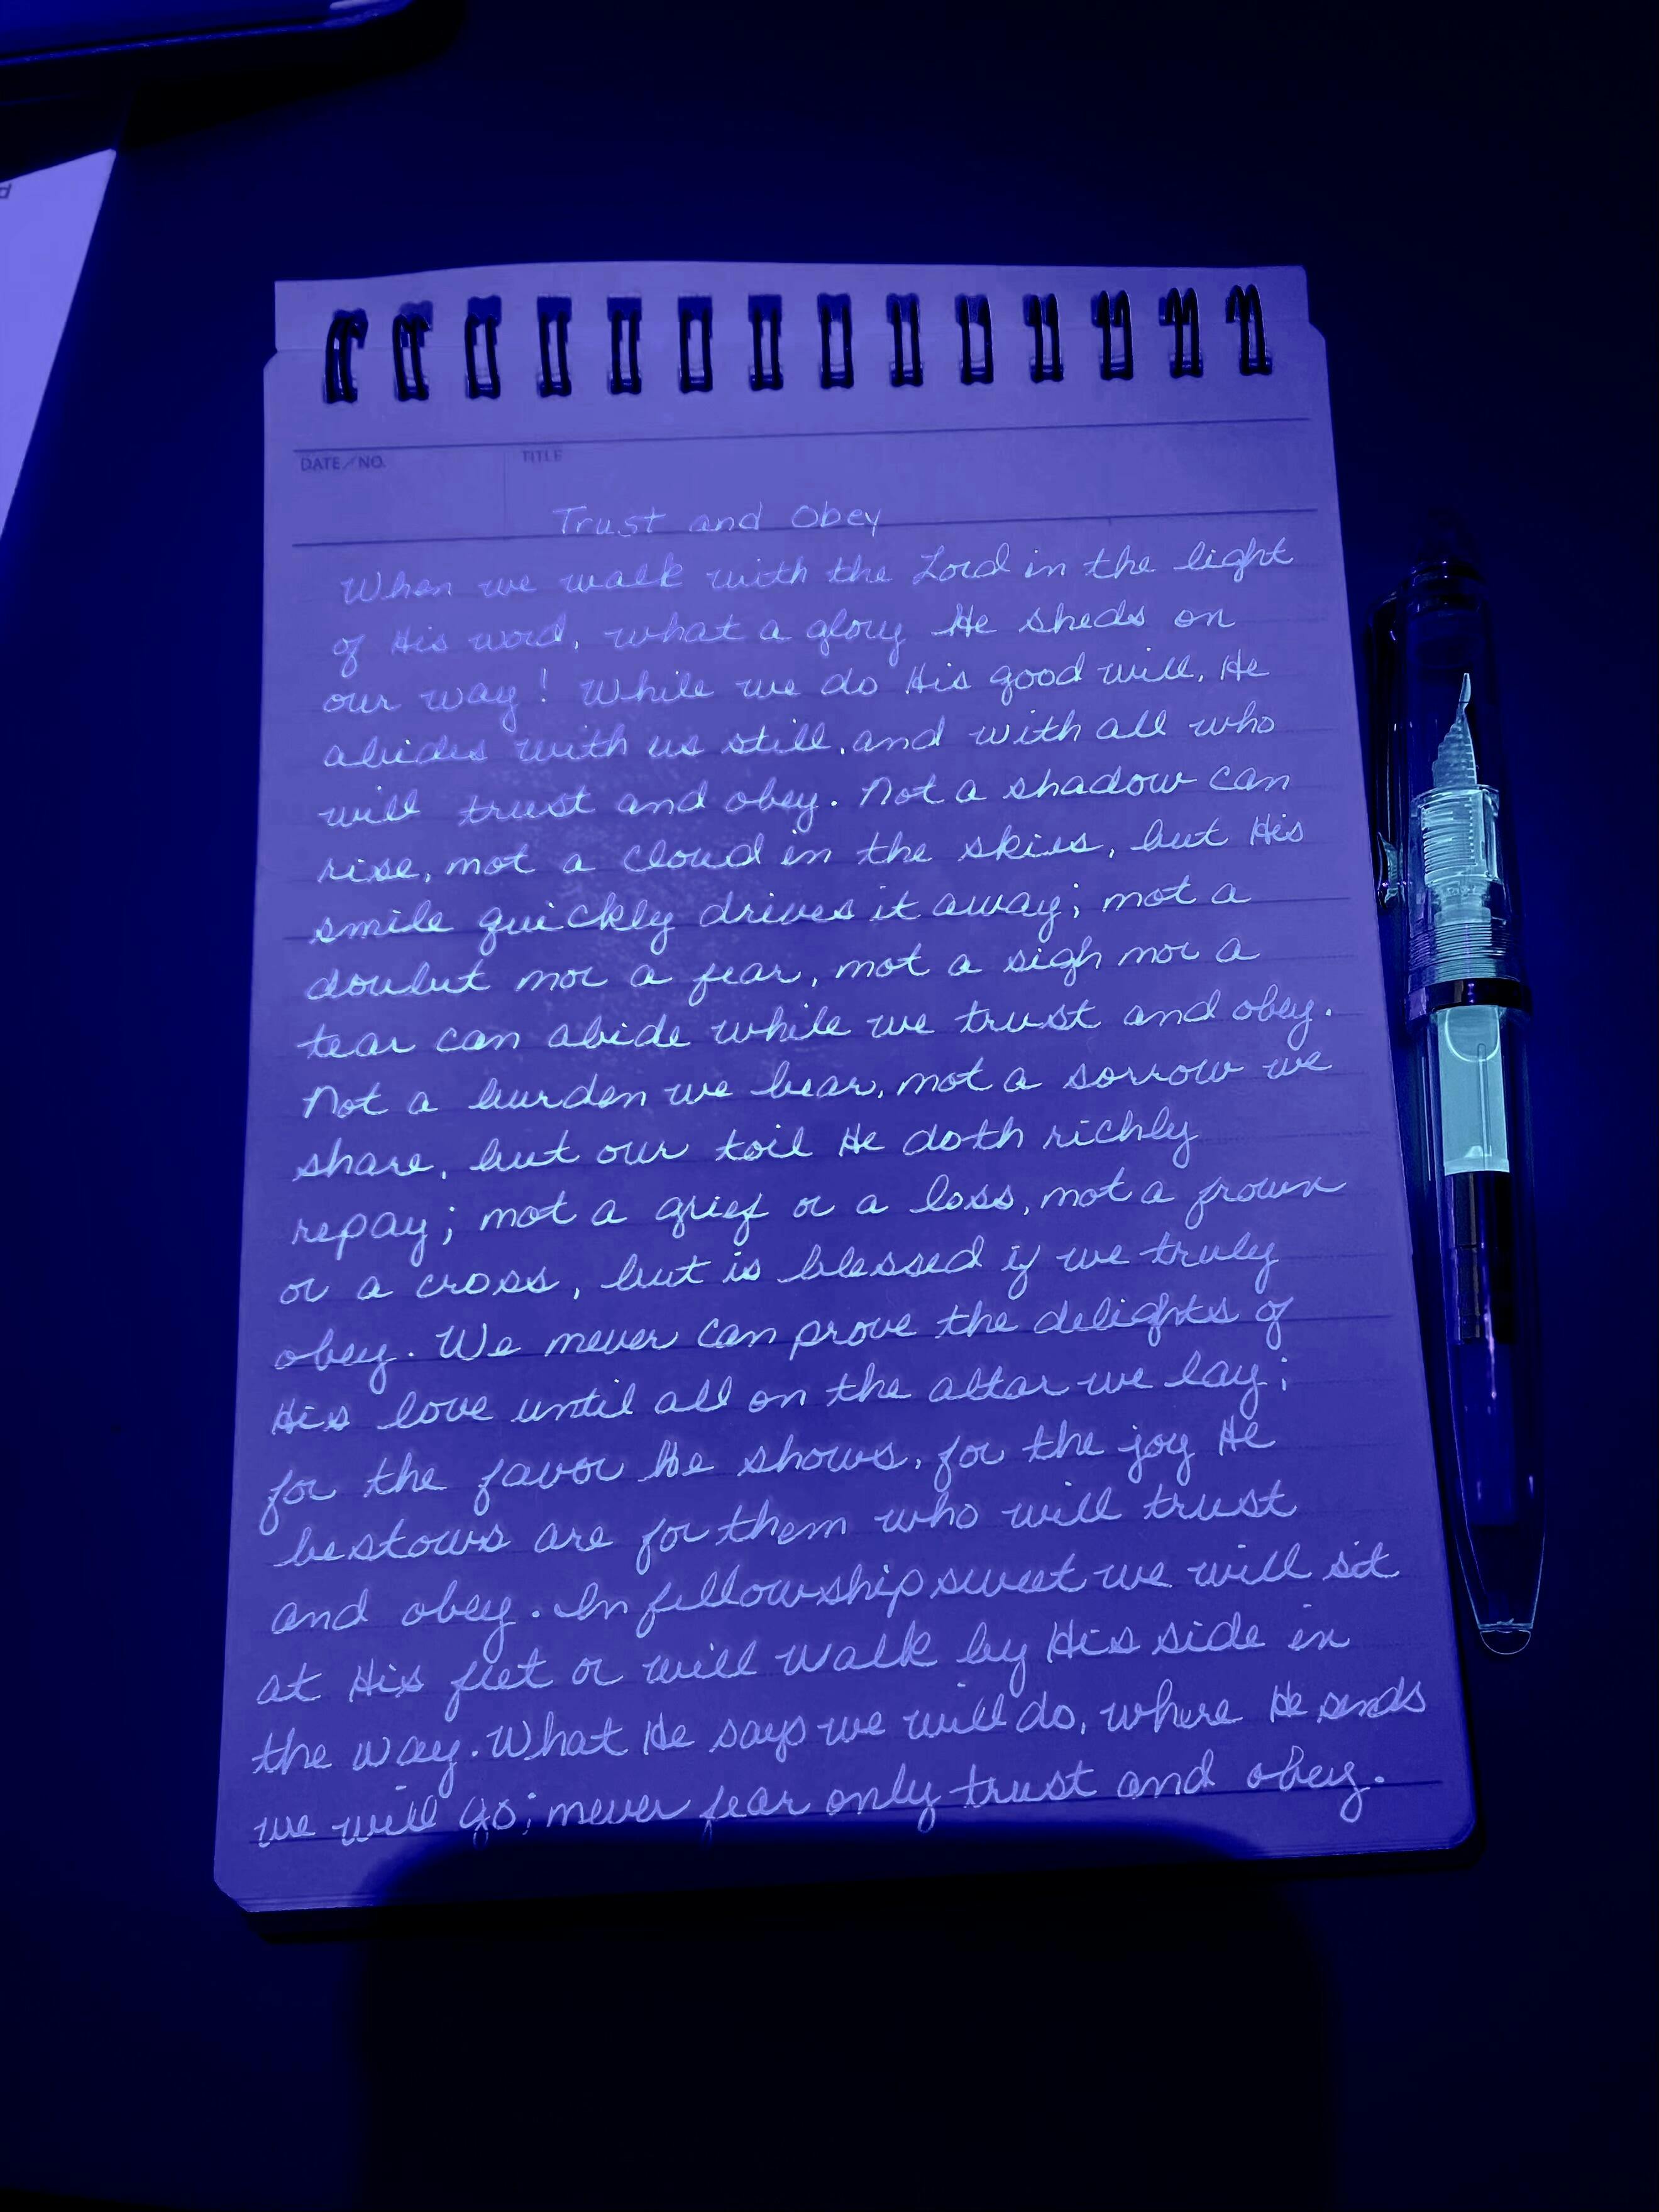 DATE/NO.
TITLE
Trust and Obey
When we walk with the Lord in the light
of His word, what a glory He sheds on
our way! While we do His good will, He
abides with us still, and with all who
will trust and obey. Not a shadow can
rise, not a cloud in the skies, but His
smile quickly drives it away; not a
doubt nor a fear, not a sigh nor a
tear can abide while we trust and obey.
Not a burden we bear, not a sorrow we
share, but our toil He doth richly
repay; not a grief or a loss, not a frown
or a cross, but is blessed if we truly
obey. We never can prove the delights of
His love until all on the altar we lay;
for the favor He shows, for the joy He
bestows are for them who will trust
and obey. In fellowship sweet we will sit
at His feet or will walk by His side in
the way. What He says we will do, where He sends
we will go; never fear only trust and obey.